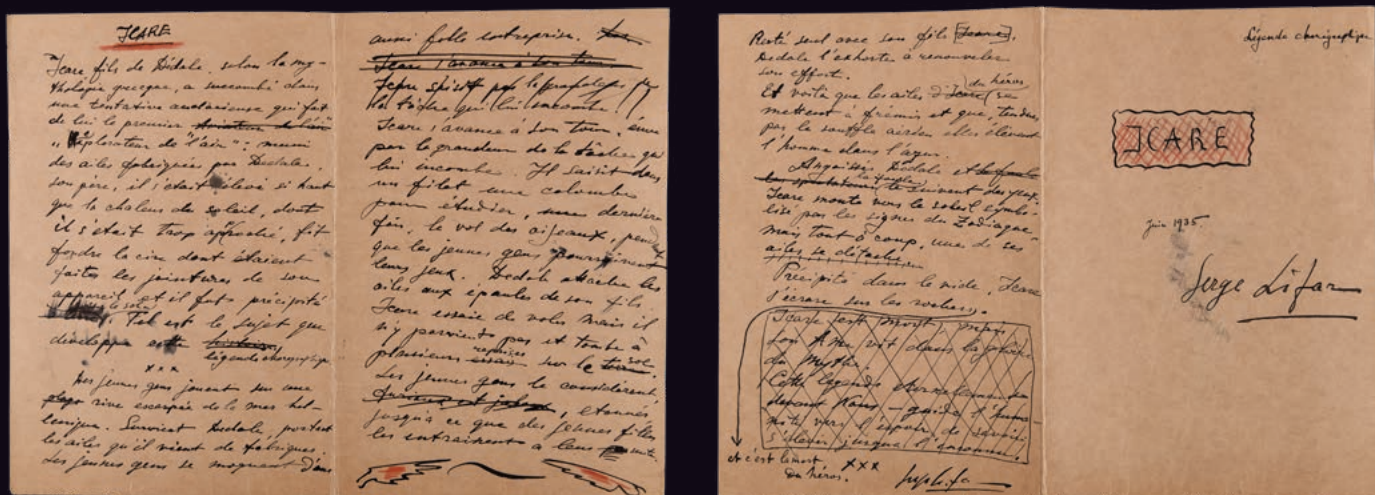 ICARE
Icare fils de Dédale, selon la my-
thologie grecque, a succombé dans
une tentative audacieuse qui fait
de lui le premier
"Explorateur de l'air" : muni
des ailes fabriquées par Dédale
son père, il s'était élevé si haut
que la chaleur du soleil, dont
il s'était trop approché, fit
fondre la cire dont étaient
faites les jointures de son
appareil et il fut précipité
Tel est le sujet que
développe cette
légende chorégraphique
xxx
Des jeunes gens jouent sur une
plage rive escarpée de la mer hel-
lénique. Survient Dédale, portant
les ailes qu'il vient de fabriquer.
Les jeunes gens se moquent d'une
aussi folle entreprise.
Icare s'avance à son tour
Icare
la tâche qui lui incombe
Icare s'avance à son tour, ému
par la grandeur de la tâche qui
lui incombe. Il saisit dans
un filet une colombe
pour étudier, une dernière
fois, le vol des oiseaux, pendant
que les jeunes gens poursuivent
leurs jeux. Dédale attache les
ailes aux épaules de son fils.
Icare essaie de voler mais il
n'y parvient pas et tombe à
plusieurs reprises sur le sol.
Les jeunes gens le considèrent,
étonnés
jusqu'à ce que des jeunes filles
les entraînent à leur suite.
Resté seul avec son fils [Icare],
Dédale l'exhorte à renouveler
son effort.
Et voilà que les ailes d'Icare du héros se
mettent à frémir et que, tendues
par le souffle aérien elles élèvent
l'homme dans l'azur.
Angoissés Dédale et la foule
les spectateurs le suivent des yeux.
Icare monte vers le soleil symbo-
lisé par les signes du Zodiaque -
mais tout à coup, une de ses
ailes se détache
Précipité dans le vide, Icare
s'écrase sur les rochers.
Icare est mort, mais
son Âme vit dans la
du Mythe.
Cette légende
devant Nous - guide l'huma-
nité vers l'espoir de
s'élever jusqu'à l'inconnu.
et c'est la mort
du héros.
xxx
Serge Lifar
Légende chorégraphique
ICARE
Juin 1935.
Serge Lifar